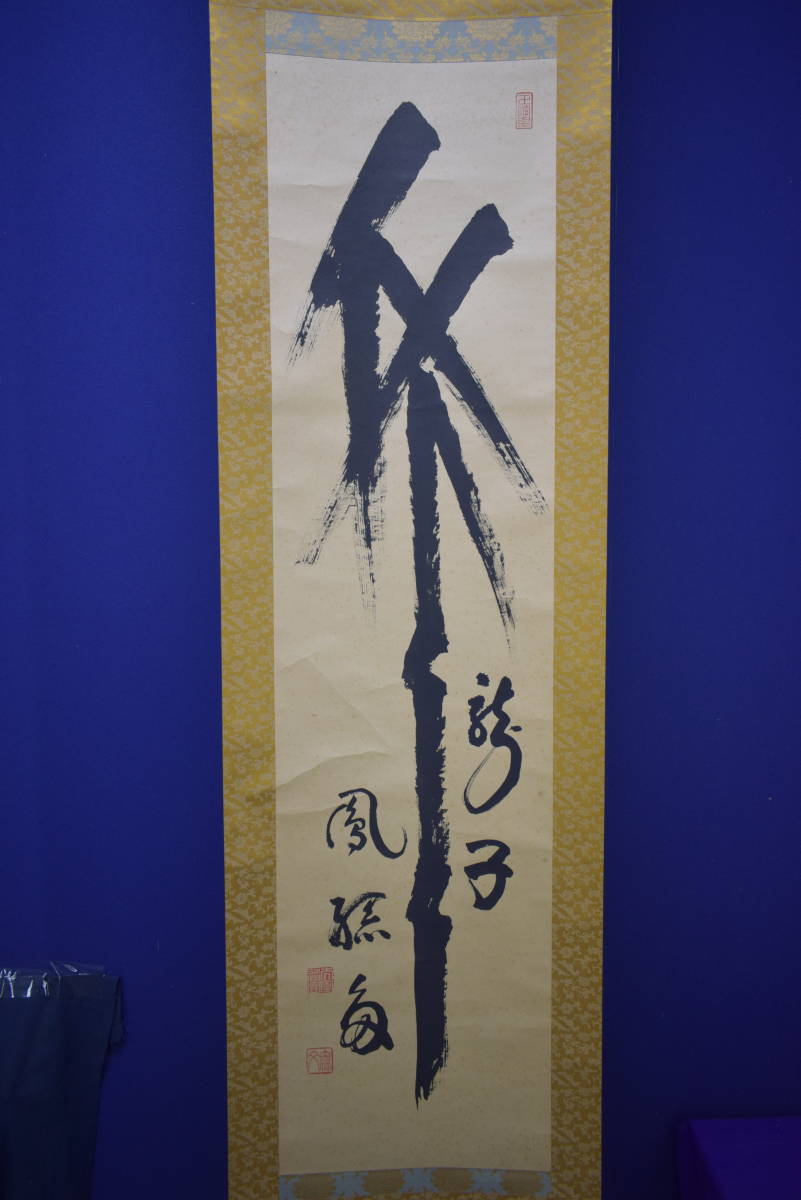 竹
龍子
鳳孫多